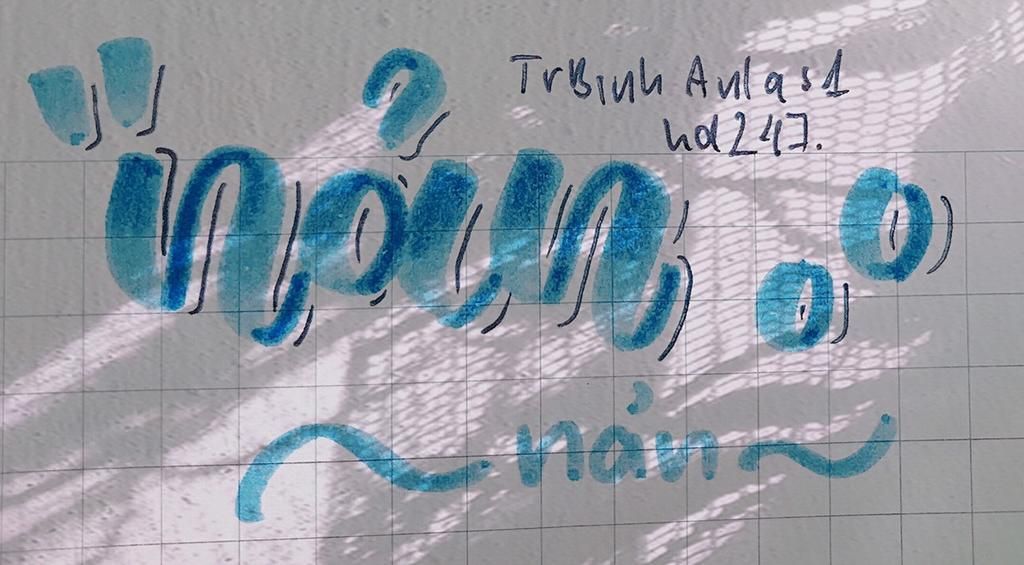 TrBinh Anlas1
hd247.
nản
~ nản ~